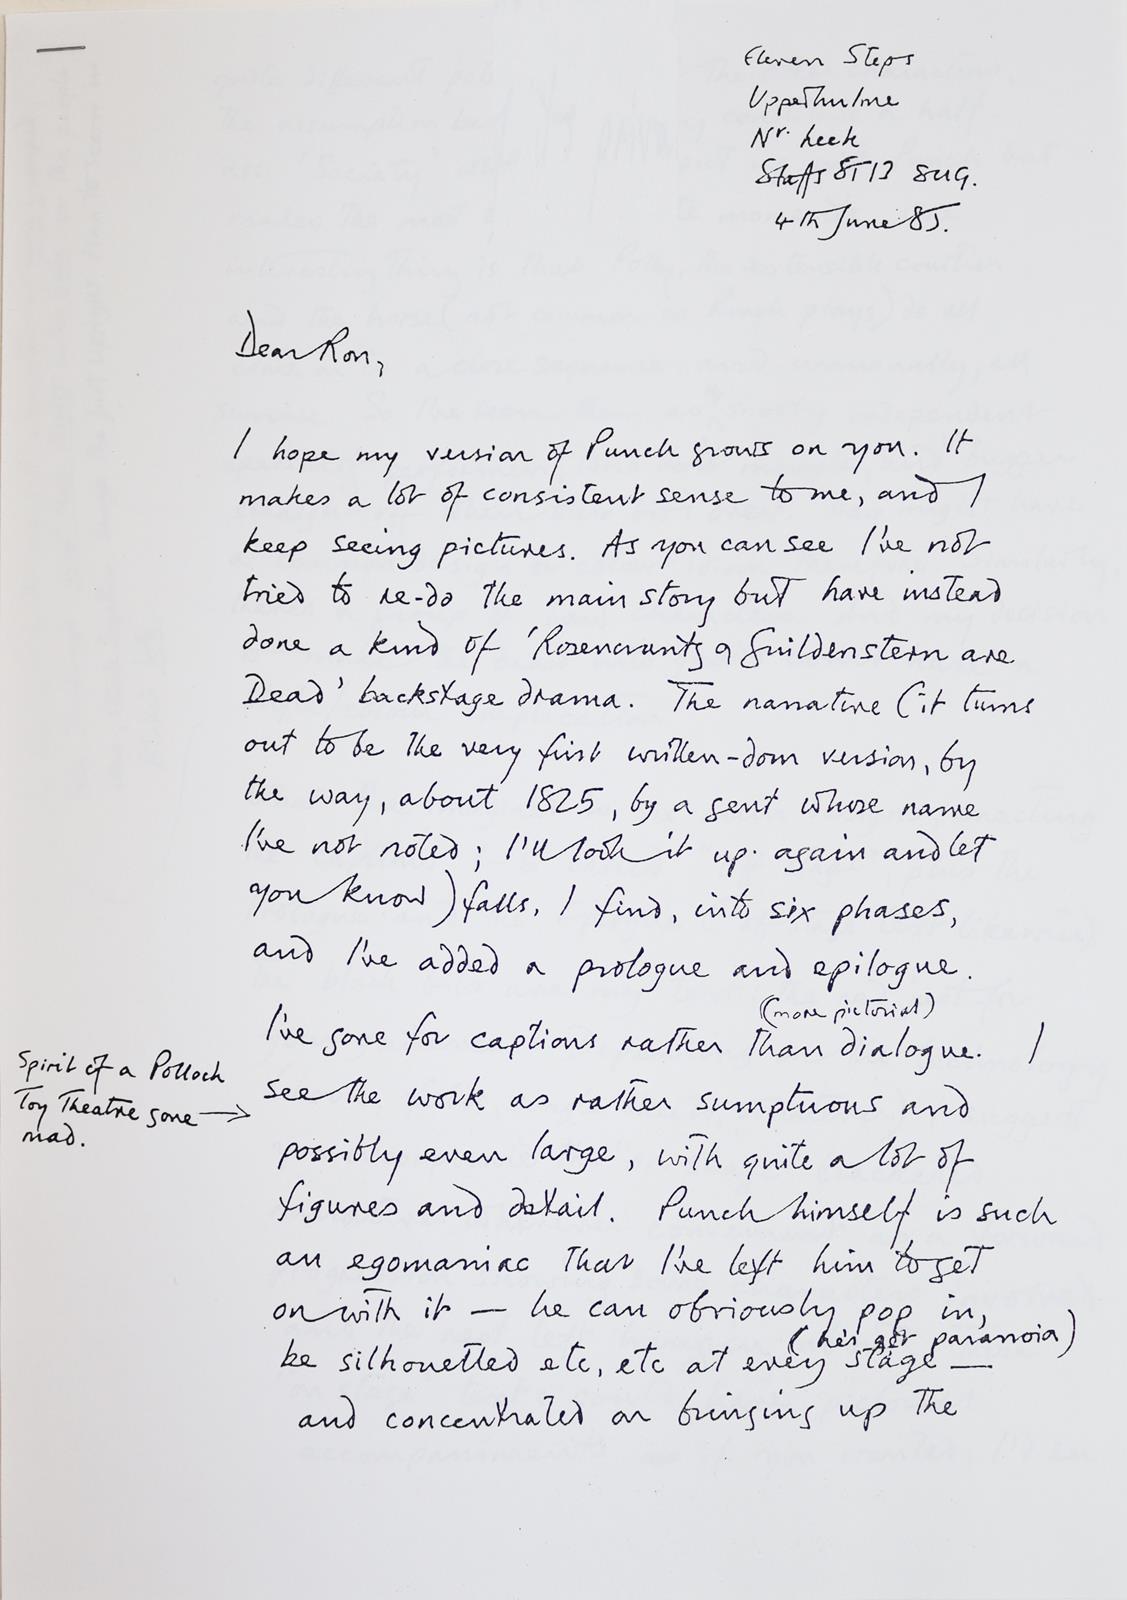 Eleven Steps
Upperhulme
Nr. Leek
Staffs ST13 8UG.
4th June 85.
Dear Ron,
I hope my version of Punch grows on you. It
makes a lot of consistent sense to me, and I
keep seeing pictures. As you can see I've not
tried to re-do the main story but have instead
done a kind of 'Rosencrantz & Guildenstern are
Dead' backstage drama. The narrative (it turns
out to be the very first written-down version, by
the way, about 1825, by a gent whose name
I've not noted; I'll look it up again and let
you know) falls, I find, into six phases,
and I've added a prologue and epilogue.
(more pictorial)
I've gone for captions rather than dialogue. I
Spirit of a Pollock
Toy Theatre gone →
mad.
see the work as rather sumptuous and
possibly even large, with quite a lot of
figures and detail. Punch himself is such
an egomaniac that I've left him to get
on with it — he can obviously pop in,
(he's got paranoia)
be silhouetted etc, etc at every stage —
and concentrated on bringing up the